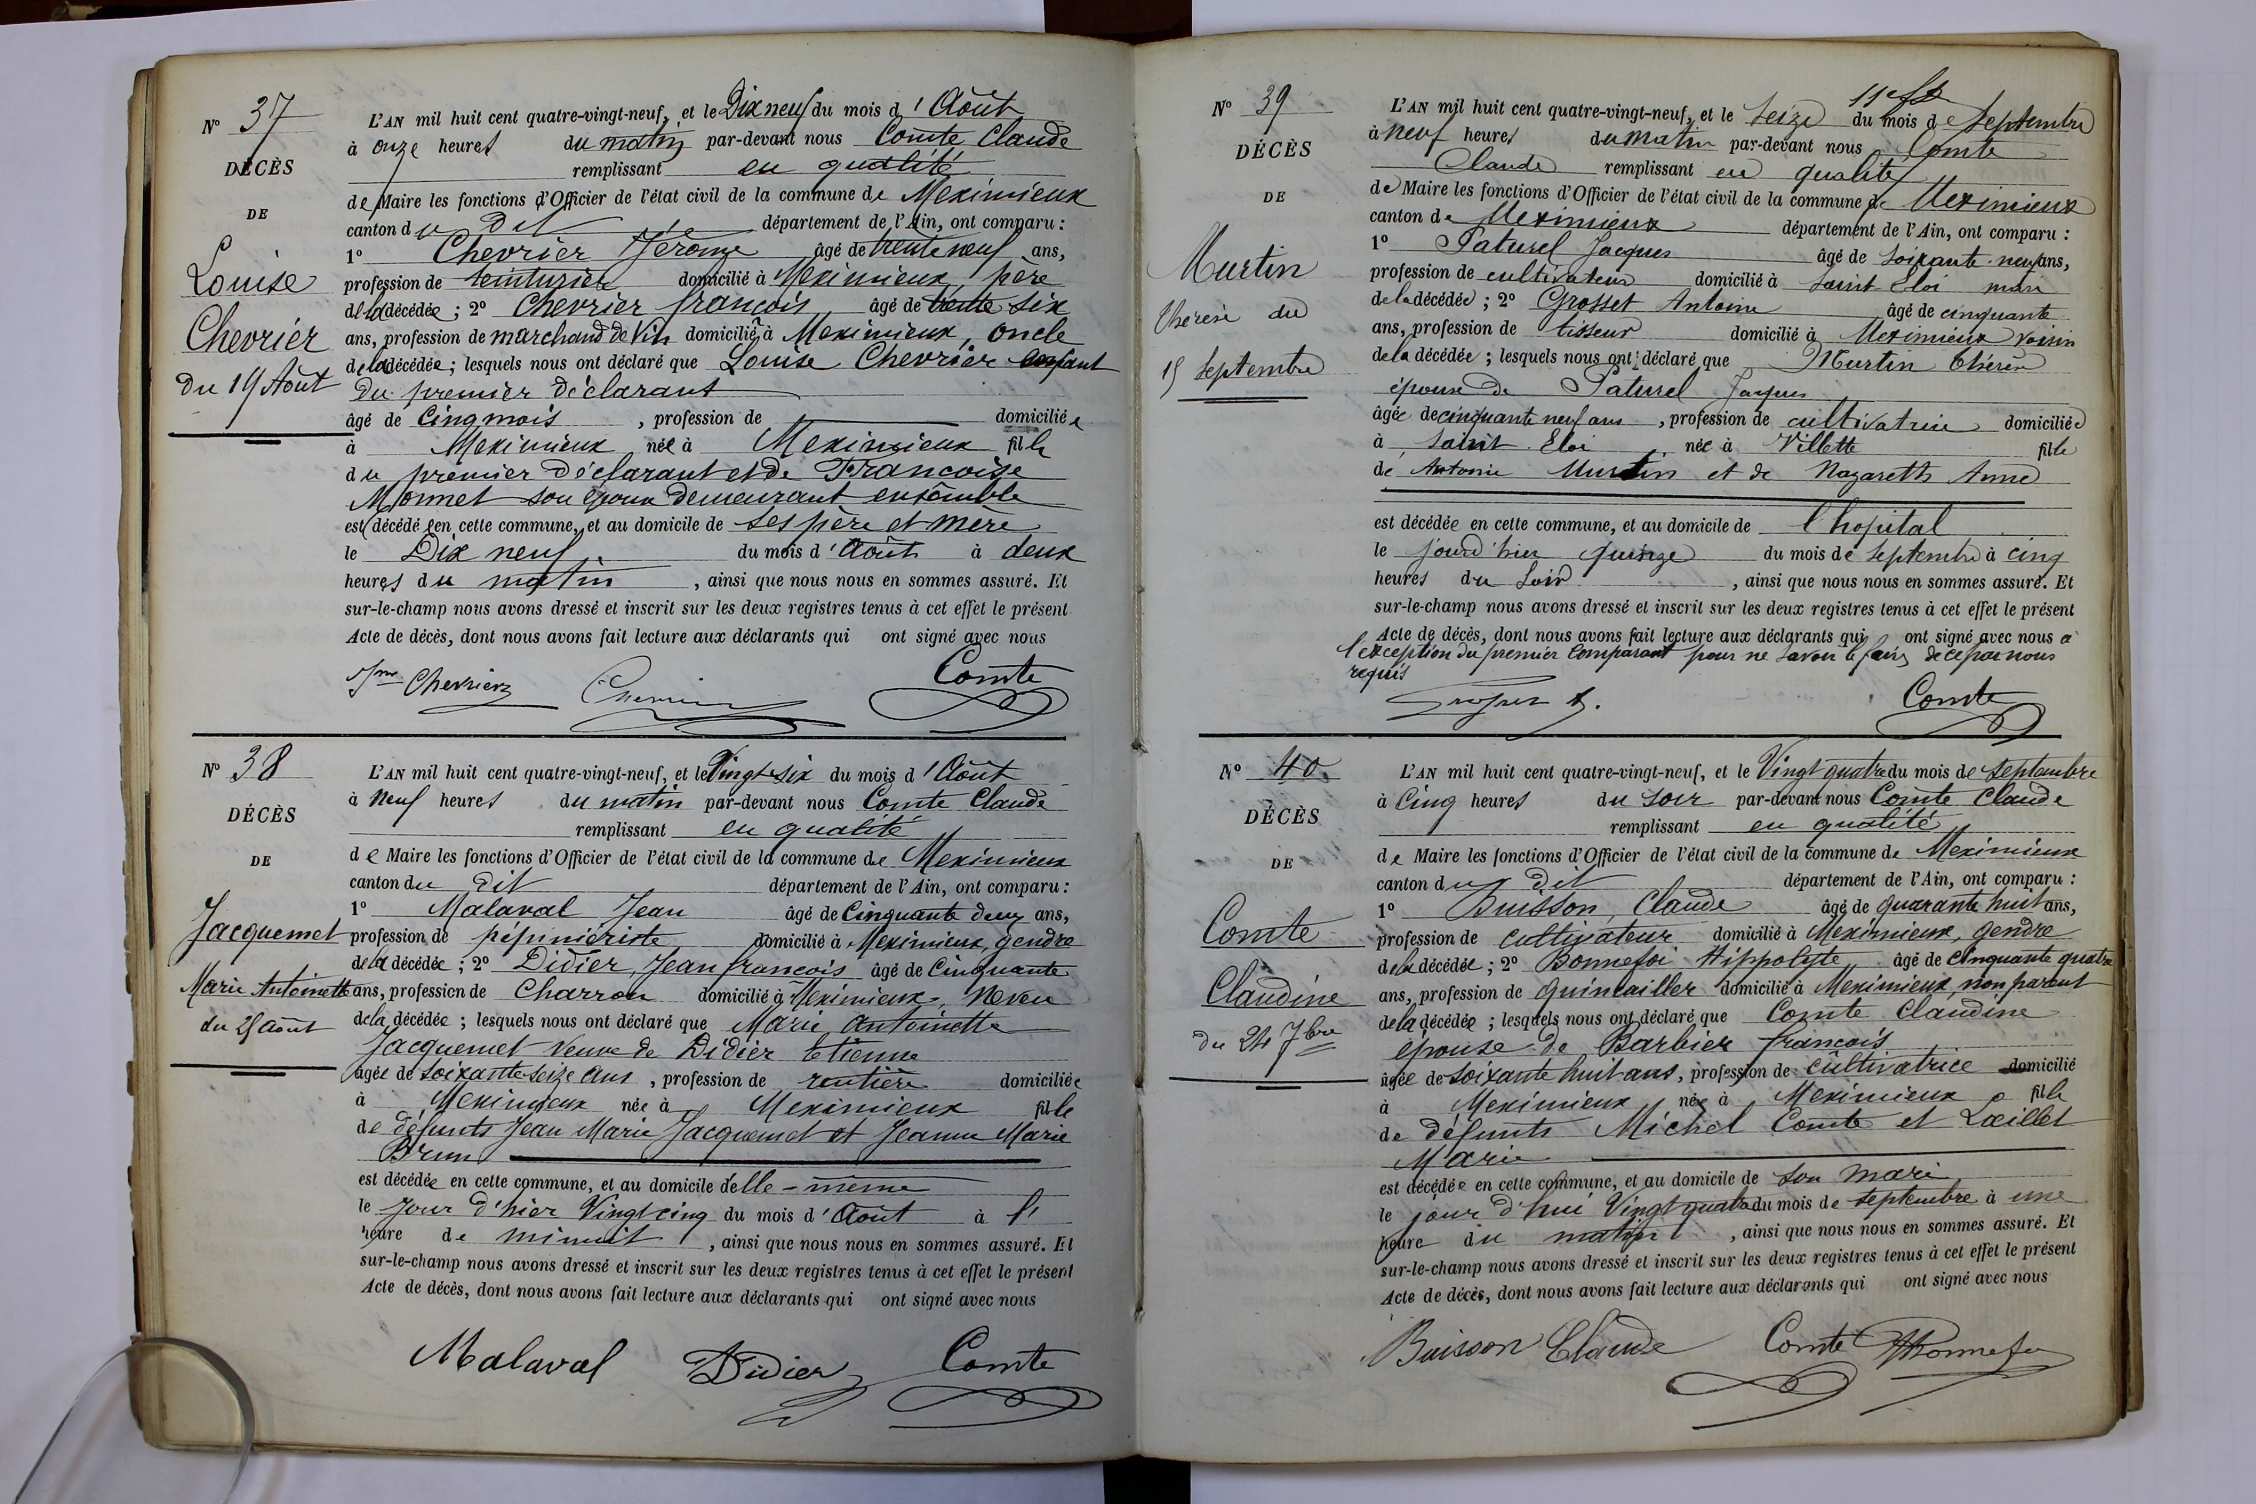 N° 37
DÉCÈS
DE
Louise
Chevrier
du 19 Août
L'AN mil huit cent quatre-vingt-neuf, et le Dix neuf du mois d'Août
à onze heures du matin par-devant nous Comte Claude
remplissant en qualité
de Maire les fonctions d'Officier de l'état civil de la commune de Meximieux
canton du dit département de l'Ain, ont comparu :
1° Chevrier Jérôme âgé de trente neuf ans,
profession de teinturier domicilié à Meximieux, père
de la décédée ; 2° Chevrier françois âgé de trente six
ans, profession de marchand de Vin domicilié à Meximieux, oncle
de la décédée ; lesquels nous ont déclaré que Louise Chevrier enfant
du premier déclarant
âgé de cinq mois, profession de domiciliée
à Meximieux née à Meximieux fille
du premier déclarant et de Francoise
Monnet son épouse demeurant ensemble
est décédé en cette commune, et au domicile de ses père et mère
le Dix neuf du mois d'Août à deux
heures du matin, ainsi que nous nous en sommes assuré. Et
sur-le-champ nous avons dressé et inscrit sur les deux registres tenus à cet effet le présent
Acte de décès, dont nous avons fait lecture aux déclarants qui ont signé avec nous
Chevrier Comte
N° 38
DÉCÈS
DE
Jacquemet
Marie Antoinette
du 25 août
L'AN mil huit cent quatre-vingt-neuf, et le Vingt six du mois d'Août
à neuf heures du matin par-devant nous Comte Claude
remplissant en qualité
de Maire les fonctions d'Officier de l'état civil de la commune de Meximieux
canton du dit département de l'Ain, ont comparu :
1° Malaval Jean âgé de Cinquante deux ans,
profession de pépiniériste domicilié à Meximieux, gendre
de la décédée ; 2° Didier, Jean françois âgé de Cinquante
ans, profession de Charron domicilié à Meximieux, Neveu
de la décédée ; lesquels nous ont déclaré que Marie Antoinette
Jacquemet Veuve de Didier Etienne
âgée de soixante seize ans, profession de rentière domiciliée
à Meximieux née à Meximieux fille
de défunts Jean Marie Jacquemet et Jeanne Marie
Brun
est décédée en cette commune, et au domicile d'elle-même
le Jour d'hier Vingt cinq du mois d'Août à l'
heure de minuit, ainsi que nous nous en sommes assuré. Et
sur-le-champ nous avons dressé et inscrit sur les deux registres tenus à cet effet le présent
Acte de décès, dont nous avons fait lecture aux déclarants qui ont signé avec nous
Malaval Didier Comte
N° 39
DÉCÈS
DE
Murtin
Thérèse du
15 septembre
L'AN mil huit cent quatre-vingt-neuf, et le seize du mois de septembre
à neuf heures du matin par-devant nous Comte
Claude remplissant en qualité
de Maire les fonctions d'Officier de l'état civil de la commune de Meximieux
canton de Meximieux département de l'Ain, ont comparu :
1° Paturel Jacques âgé de soixante neuf ans,
profession de cultivateur domicilié à Saint Eloi mari
de la décédée ; 2° Grosset Antoine âgé de cinquante
ans, profession de tisseur domicilié à Meximieux voisin
de la décédée ; lesquels nous ont déclaré que Murtin Thérèse
épouse de Paturel Jacques
âgée de cinquante neuf ans, profession de cultivatrice domiciliée
à Saint Eloi née à Villette fille
de Antoine Murtin et de Nazareth Anne
est décédée en cette commune, et au domicile de l'hopital
le jourd'hier quinze du mois de septembre à cinq
heures du soir, ainsi que nous nous en sommes assuré. Et
sur-le-champ nous avons dressé et inscrit sur les deux registres tenus à cet effet le présent
Acte de décès, dont nous avons fait lecture aux déclarants qui ont signé avec nous à
l'exception du premier Comparant pour ne savoir le faire de ce par nous
requis
Comte
N° 40
DÉCÈS
DE
Comte
Claudine
du 24 7bre
L'AN mil huit cent quatre-vingt-neuf, et le Vingt quatre du mois de septembre
à Cinq heures du soir par-devant nous Comte Claude
remplissant en qualité
de Maire les fonctions d'Officier de l'état civil de la commune de Meximieux
canton du dit département de l'Ain, ont comparu :
1° Buisson, Claude âgé de quarante huit ans,
profession de cultivateur domicilié à Meximieux, gendre
de la décédée ; 2° Bonnefoi Hippolyte âgé de cinquante quatre
ans, profession de quincailler domicilié à Meximieux, non parent
de la décédée ; lesquels nous ont déclaré que Comte Claudine
épouse de Barbier françois
âgée de soixante huit ans, profession de cultivatrice domicilié
à Meximieux née à Meximieux fille
de défunts Michel Comte et Lœillet
Marie
est décédée en cette commune, et au domicile de son mari
le jour d'hui Vingt quatre du mois de septembre à une
heure du matin, ainsi que nous nous en sommes assuré. Et
sur-le-champ nous avons dressé et inscrit sur les deux registres tenus à cet effet le présent
Acte de décès, dont nous avons fait lecture aux déclarants qui ont signé avec nous
Buisson Claude Comte